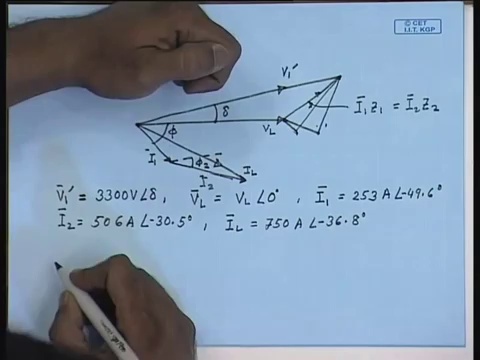 © CET
I.I.T. KGP
V̄₁′
δ
V_L
Ī₁Z₁ = Ī₂Z₂
ϕ
Ī₁
ϕ₂
Ī₂
I_L
V̄₁′ = 3300V∠δ , V̄_L = V_L∠0° , Ī₁ = 253A∠-49.6°
Ī₂ = 506A∠-30.5° , Ī_L = 750A∠-36.8°